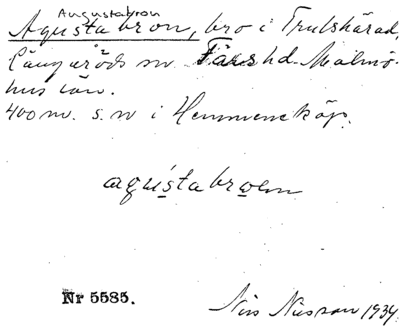 Augustabron
Agusta bron, bro i Trulshärad,
Långaröds sn Färs hd. Malmö-
hus län.
400 m. s. n i Hemmeneköp.
agustabroen
Nr 5585.
Nils Nilsson 1934.